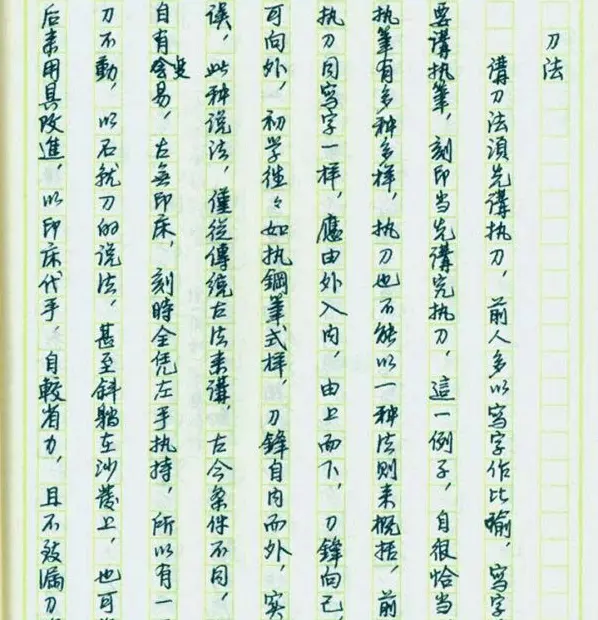 刀法
講刀法須先講执刀，前人多以寫字作比喻，寫字
要講执筆，刻印当先講究执刀，這一例子，自很恰当
执筆有多种多样，执刀也不能以一种法则来概括，前
执刀同寫字一样，應由外入内，由上而下，刀鋒向己，
可向外，初学往々如执鋼筆式样，刀鋒自内而外，实
误，此种说法，僅從傳統古法来講，古今条件不同，
自有变易，古無印床，刻時全凭左手执持，所以有一
刀不動，以石就刀的说法，甚至斜躺在沙發上，也可
后来用具改進，以印床代手，自較省力，且不致漏刀